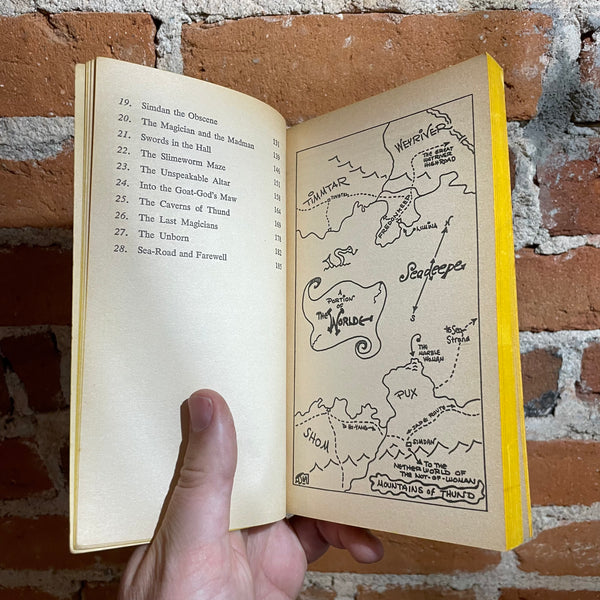 19. Simdan the Obscene
20. The Magician and the Madman 131
21. Swords in the Hall 139
22. The Slimeworm Maze 146
23. The Unspeakable Altar 151
24. Into the Goat-God's Maw 158
25. The Caverns of Thund 164
26. The Last Magicians 169
27. The Unborn 178
28. Sea-Road and Farewell 182
185
WEYRIVER
THE GREAT
HIGHROAD
TIMMTAR
FREDONKEEP
N
Seadeepe
S
A
PORTION
OF
THE WORLDE
to Sea
Strand
THE
MARBLE
WOMAN
PUX
JADE ROUTE
SIMDAN
SHOM
TO THE
NETHERWORLD OF
THE NOT-OF-WOMAN
MOUNTAINS OF THUND